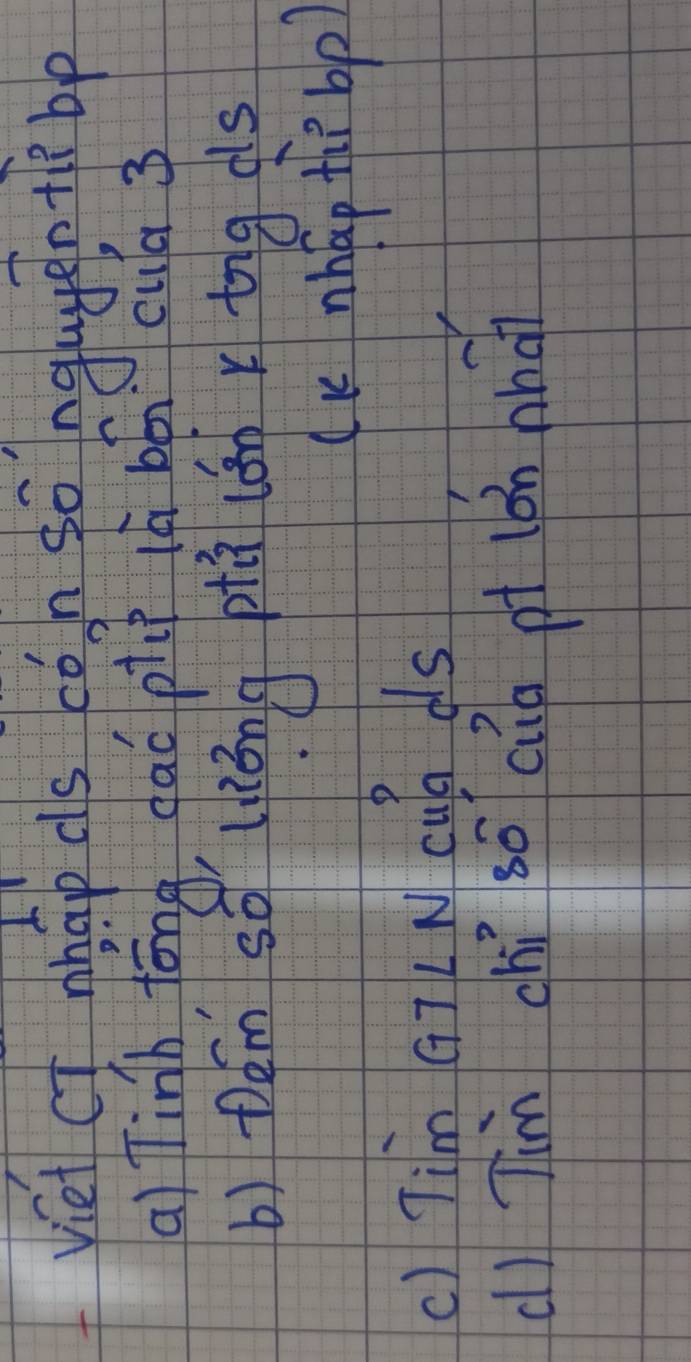 Viết CT nhập ds có n số nguyên từ bp
a) Tính tổng các ptử là bội của 3
b) Đếm số lượng ptử lớn k trg ds
(k nhập từ bp)
c) Tìm GTLN của ds
d) Tìm chỉ số của pt lớn nhất